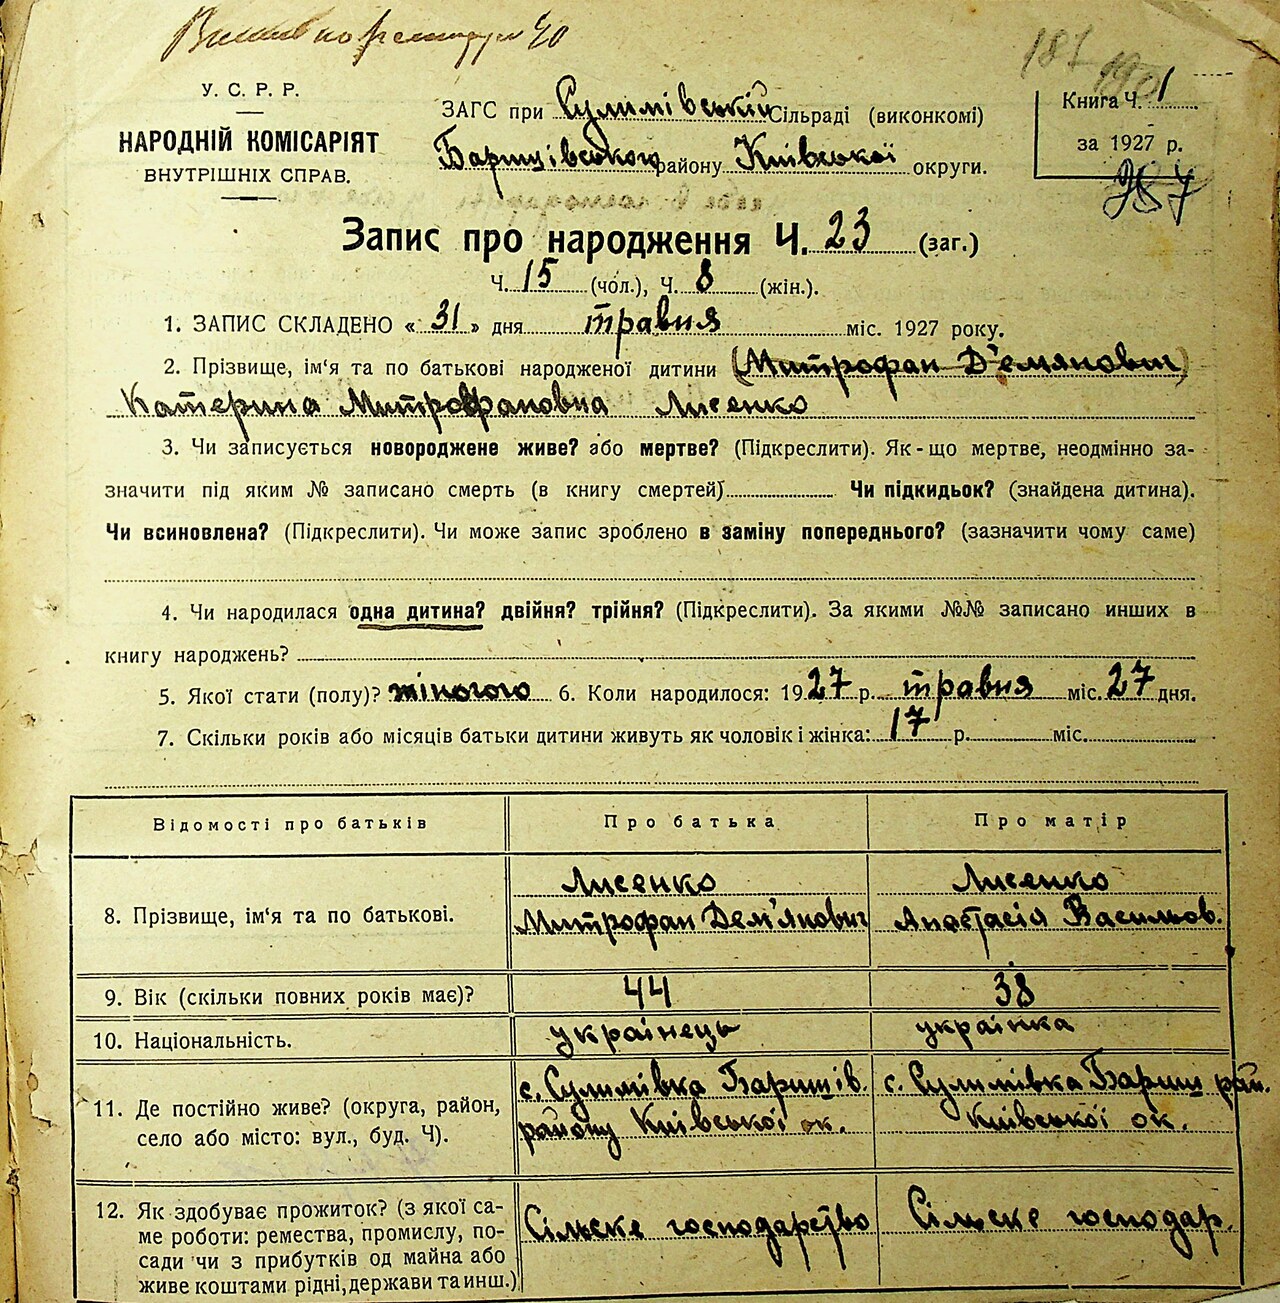 187
У. С. Р. Р.
НАРОДНІЙ КОМІСАРІЯТ
ВНУТРІШНІХ СПРАВ.
ЗАГС при Сулимівській Сільраді (виконкомі)
Баришівського району Київської округи.
Книга Ч. 1
за 1927 р.
Запис про народження Ч. 23 (заг.)
Ч. 15 (чол.), Ч. 8 (жін.).
1. ЗАПИС СКЛАДЕНО « 31 » дня травня міс. 1927 року.
2. Прізвище, ім‘я та по батькові народженої дитини (Митрофан Д'емянович)
Катерина Митрофановна Лисенко
3. Чи записується новороджене живе? або мертве? (Підкреслити). Як-що мертве, неодмінно за-
значити під яким № записано смерть (в книгу смертей) Чи підкидьок? (знайдена дитина).
Чи всиновлена? (Підкреслити). Чи може запис зроблено в заміну попереднього? (зазначити чому саме)
4. Чи народилася одна дитина? двійня? трійня? (Підкреслити). За якими №№ записано инших в
книгу народжень?
5. Якої стати (полу)? жіногого 6. Коли народилося: 1927 р. травня міс. 27 дня.
7. Скільки років або місяців батьки дитини живуть як чоловік і жінка: 17 р. міс.
Відомості про батьків Про батька Про матір
8. Прізвище, ім'я та по батькові.
Лисенко
Митрофан Дем'янович
Лисенко
Анастасія Васильов.
9. Вік (скільки повних років має)? 44 38
10. Національність. українець українка
11. Де постійно живе? (округа, район,
село або місто: вул., буд. Ч).
с. Сулимівка Баришів.
району Київської ок.
с. Сулимівка Бариш рай.
Київської ок.
12. Як здобуває прожиток? (з якої са-
ме роботи: ремества, промислу, по-
сади чи з прибутків од майна або
живе коштами рідні, держави та инш.)
Сільске господарство
Сільске господар.